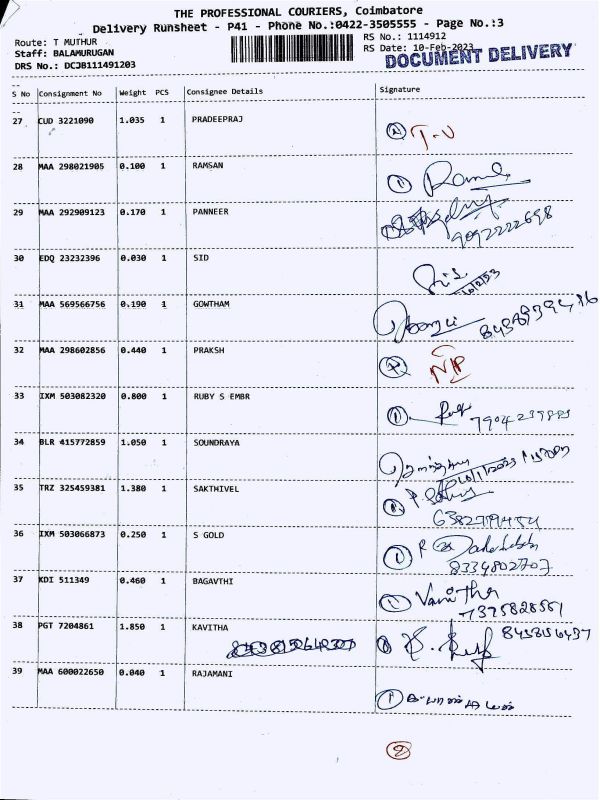 THE PROFESSIONAL COURIERS, Coimbatore
Delivery Runsheet - P41 - Phone No.:0422-3505555 - Page No.:3
Route: T MUTHUR
RS No.: 1114912
Staff: BALAMURUGAN
RS Date: 10-Feb-2023
DRS No.: DCJB111491203
DOCUMENT DELIVERY
S No Consignment No Weight PCS Consignee Details Signature
27 CUD 3221090 1.035 1 PRADEEPRAJ
28 MAA 298021905 0.100 1 RAMSAN
29 MAA 292909123 0.170 1 PANNEER
9092222698
30 EDQ 23232396 0.030 1 SID
31 MAA 569566756 0.190 1 GOWTHAM
32 MAA 298602856 0.440 1 PRAKSH
33 IXM 503082320 0.800 1 RUBY S EMBR
34 BLR 415772859 1.050 1 SOUNDRAYA
35 TRZ 325459381 1.380 1 SAKTHIVEL
36 IXM 503066873 0.250 1 S GOLD
8334802707
37 KDI 511349 0.460 1 BAGAVTHI
Vanitha
38 PGT 7204861 1.850 1 KAVITHA
39 MAA 600022650 0.040 1 RAJAMANI
2